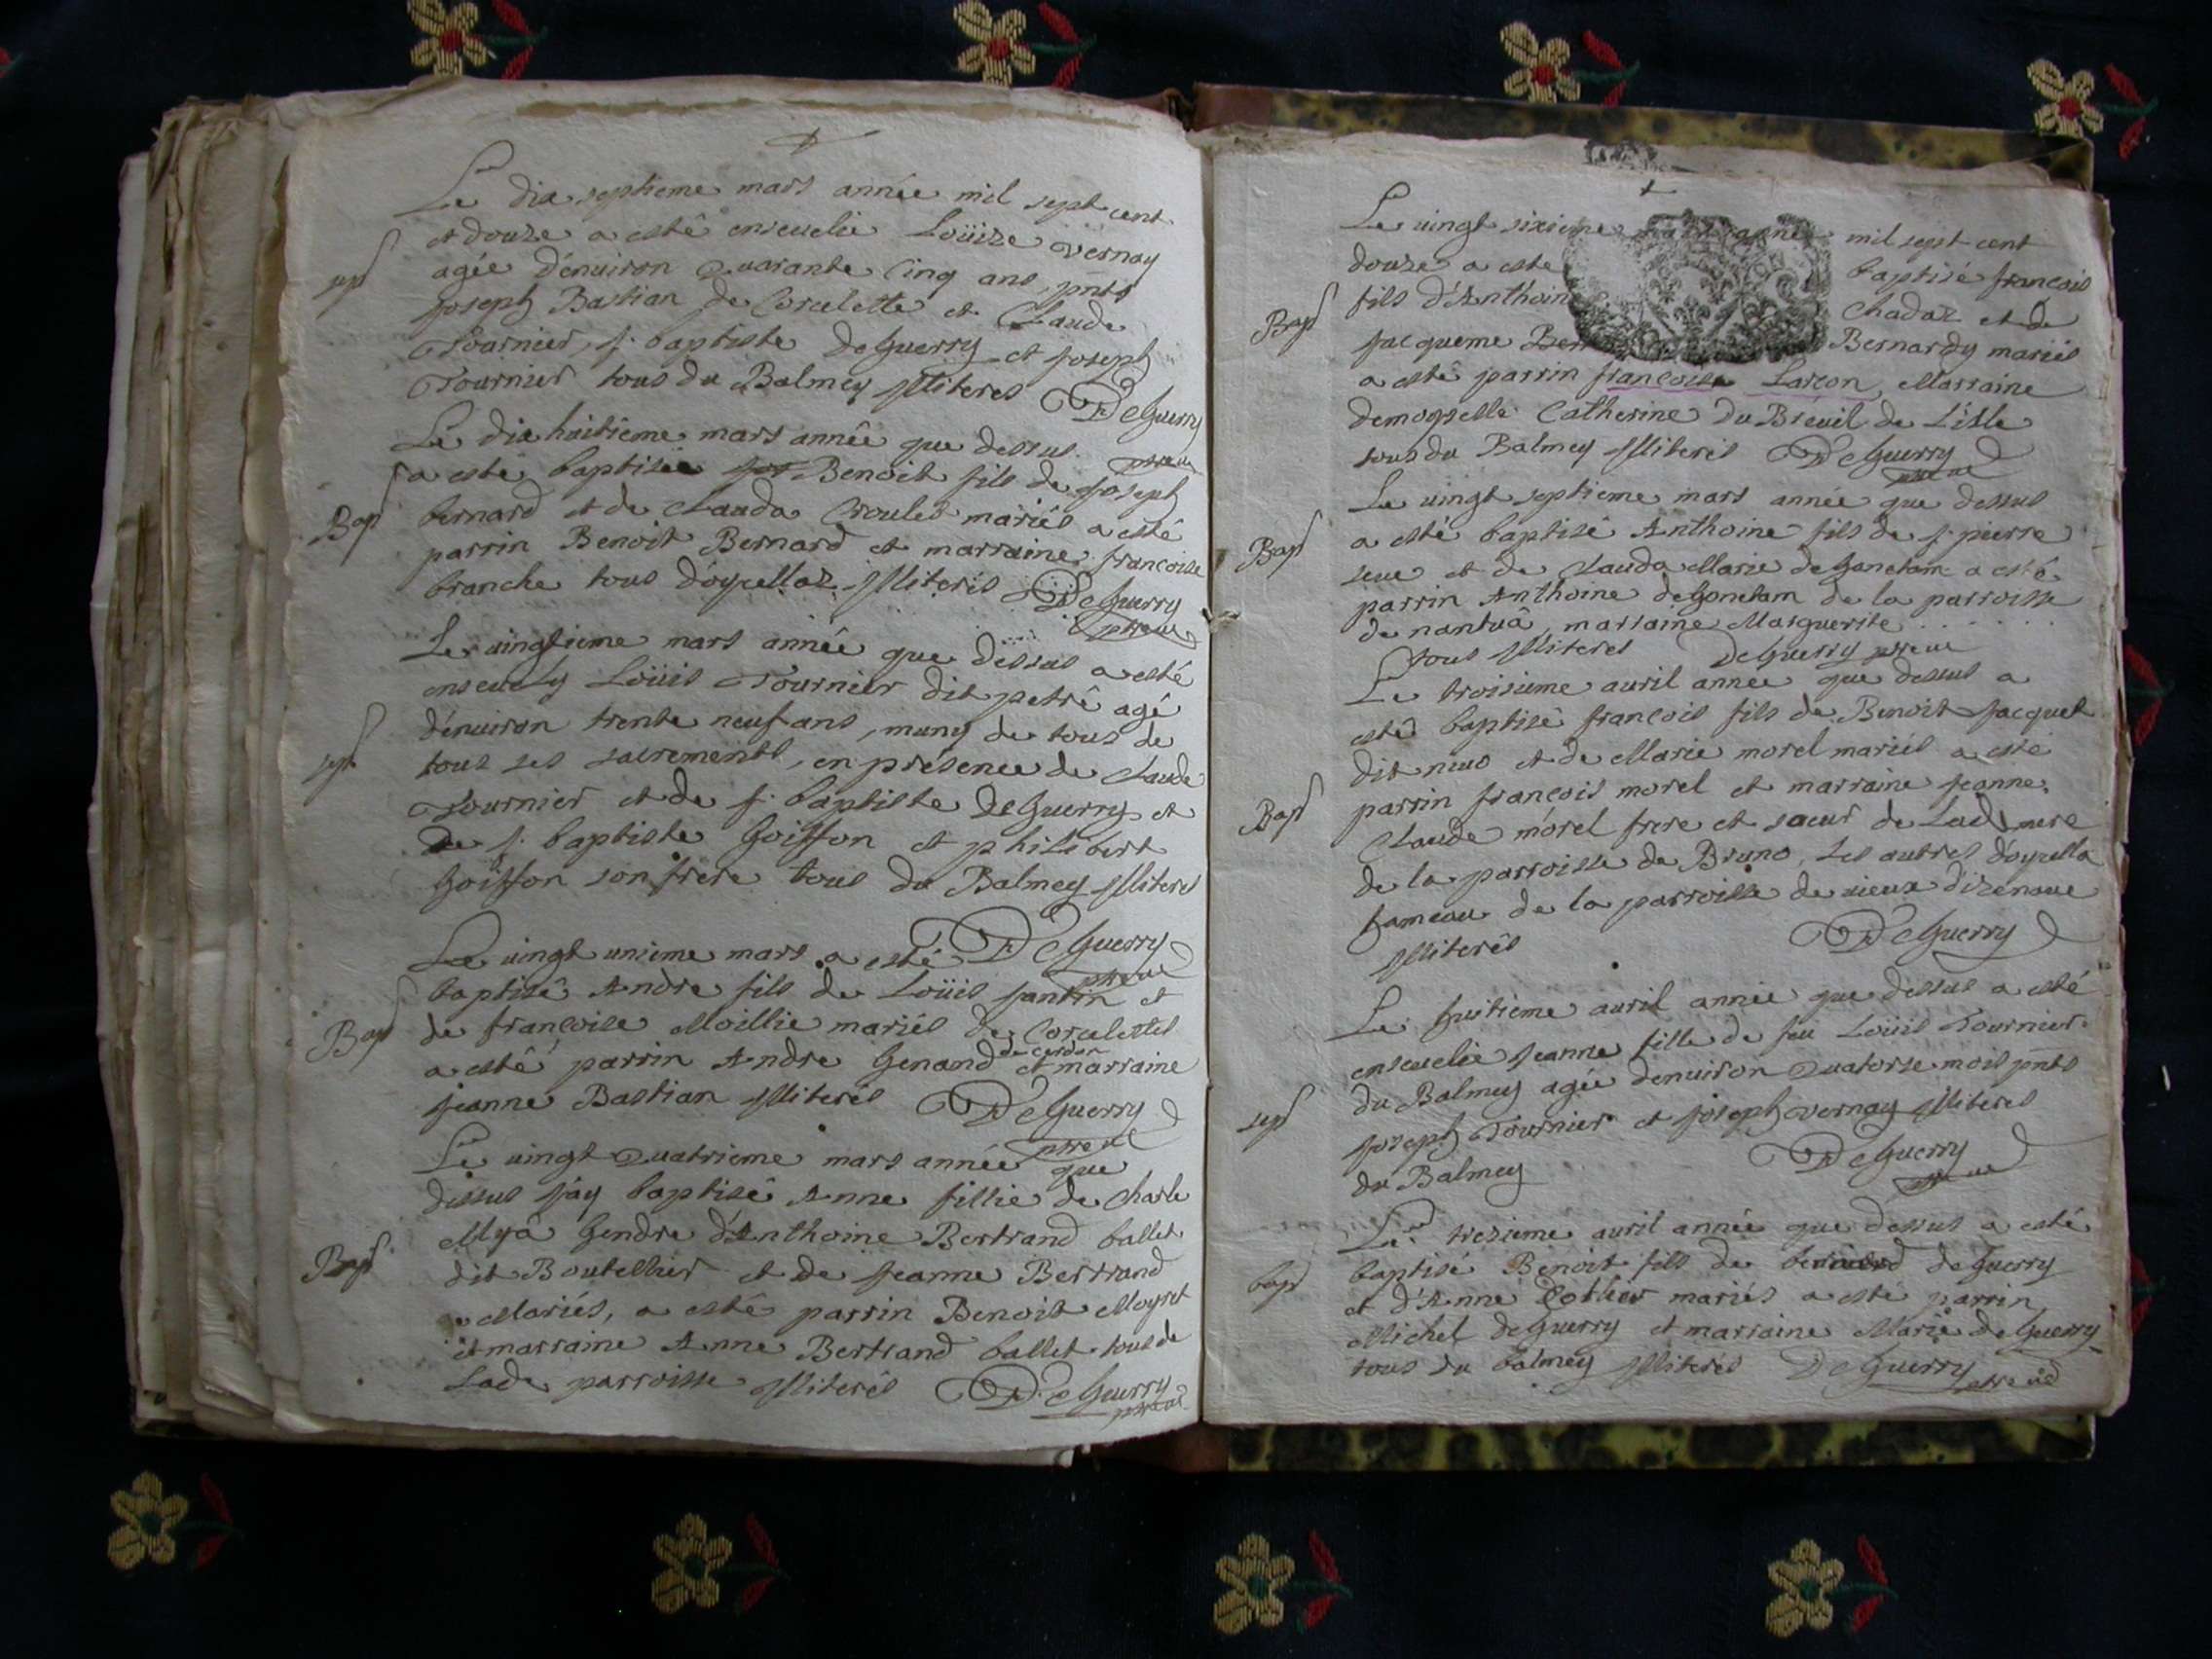 Le dix septieme mars année mil sept cent
et douze a esté enseuelie Loüize Vernay
sep
agée d'enuiron Quarante Cinq ans, pnts
Joseph Bastian de Corcelette et Claude
Tournier, J. baptiste DeGuerry et Joseph
Tournier tous du Balmey Illiteres DeGuerry
Le dix huitieme mars année que dessus ptre
a esté baptisée Benoit fils de Joseph
Bap
bernard et de Clauda Croulet mariés a esté
parrin Benoit Bernard et marraine francoise
branche tous d'oysellaz Illiterés DeGuerry
ptre
Le uingtieme mars année que dessus a esté
enseuely Loüis Tournier dit petrê agé
d'enuiron trente neuf ans, muny de tous de
sep
tous ses sacrements, en présence de Claude
Tournier et de J. baptiste DeGuerry et
de J. baptiste Goiffon et philibert
Goiffon son frere tous du Balmey Illiteres
DeGuerry
Le uingt unieme mars a esté ptre
baptisé Andre fils de Loüis Jantin et
Bap
de francoise Moillie mariés de Corcelettes
de Cerdon
a esté parrin Andre Genand et marraine
Jeanne Bastian Illiterés DeGuerry
ptre
Le uingt Quatrieme mars année que
dessus j'ay baptisé Anne fillie de Charle
Mya Gendre d'Anthoine Bertrand ballet
Bap
dit Boutellier et de Jeanne Bertrand
Mariés, a esté parrin Benoit Moyret
et marraine Anne Bertrand ballet tous de
Lade parroisse Illiterés DeGuerry
ptre
Le uingt sixieme année mil sept cent
douze a este baptisé francois
Bap
fils d'Anthoine Chadaz et de
Jacqueme Bernardy mariés
a esté parrin francoise Larcon, Marraine
demoyselle Catherine du Breuil de L'isle
tous du Balmey Illiterés DeGuerry
ptre
Le uingt septieme mars année que dessus
Bap
a esté baptisé Anthoine fils de J. pierre
seue et de Clauda Marie deGonetam a esté
parrin Anthoine deGonetam de la parroisse
de nantuâ, marraine Marguerite . . . . . .
tous Illiteres DeGuerry ptre
Le troisieme auril année que dessus a
esté baptisé francois fils de Benoit Jacquet
dit et de Marie morel mariés a esté
Bap
parrin francois morel et marraine Jeanne
Claude morel frere et saeur de Lad mere
de la parroisse de Bruno, Les autres d'oysella
hameau de la parroisse de uieux d'izenaue
Illiterés DeGuerry
Le huitieme auril année que dessus a esté
enseuelie Jeanne fille de feu Loüis Tournier
du Balmey agée denuiron Quatorse mois pnts
sep
Joseph Tournier et Joseph Vernay Illiteres
du Balmey DeGuerry
ptre
Le tresieme auril année que dessus a esté
bap
baptisé Benoit fils de bernard deGuerry
et d'Anne mariés a esté parrin
Michel deGuerry et marraine Marie deGuerry
tous du balmey Illiterés DeGuerry
ptre